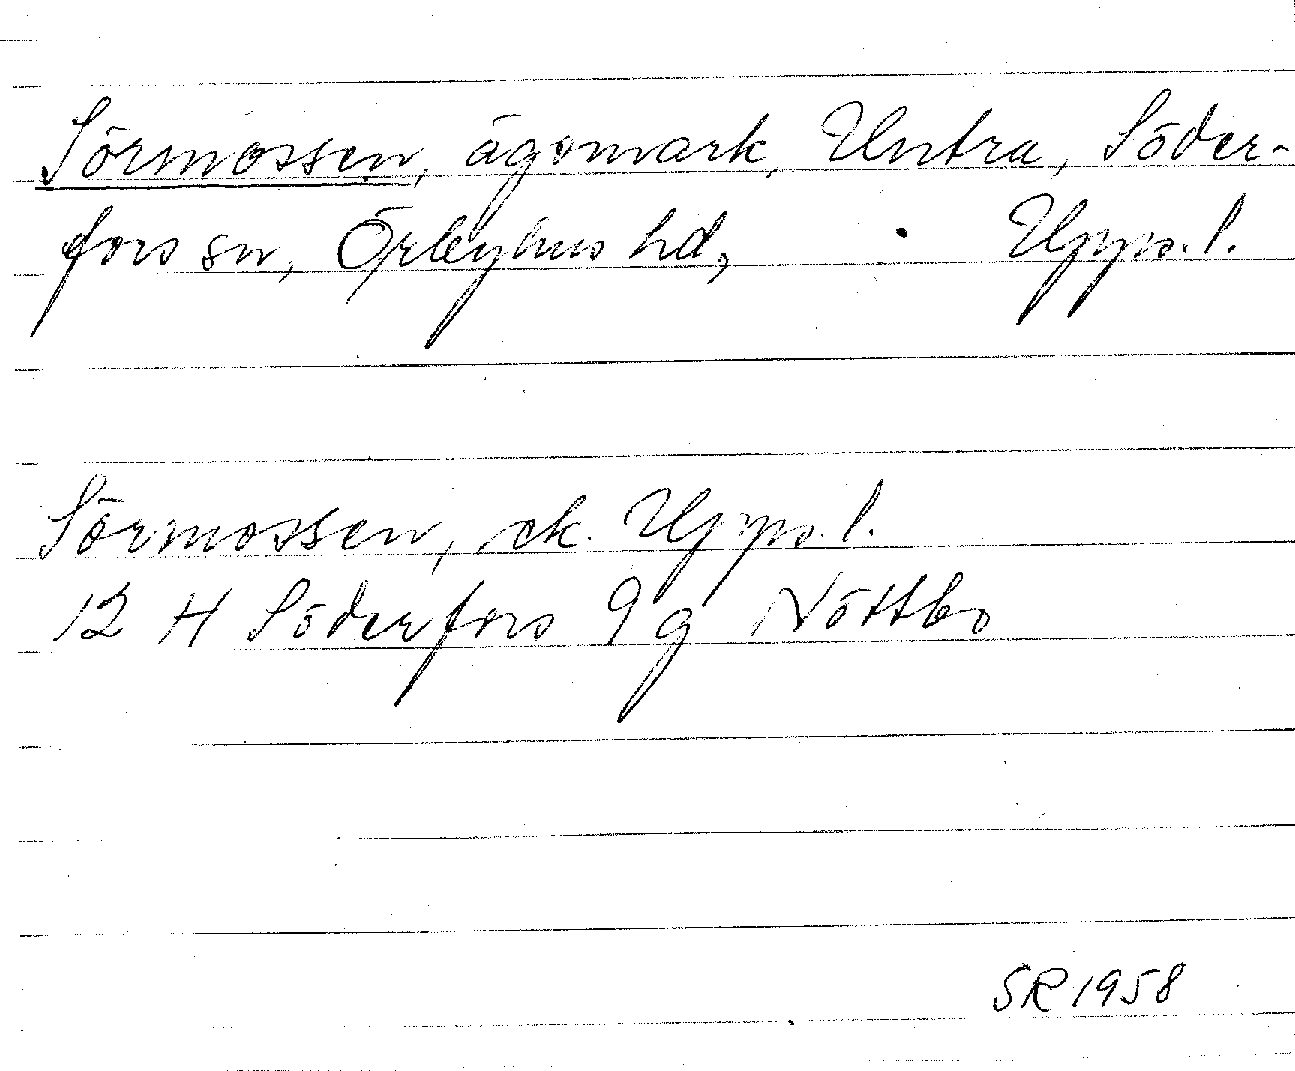 Sörmossen, ägomark, Untra, Söder-
fors sn, Örbyhus hd, Upps. l.
Sörmossen, ek. Upps. l.
12 H Söderfors 9 g Nöttbo
SR 1958